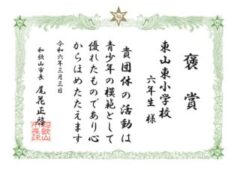 褒賞
東山東小学校
六年生 様
貴団体の活動は
青少年の模範として
優れたものであり心
からほめたたえます
令和六年三月三日
和歌山市長 尾花正啓